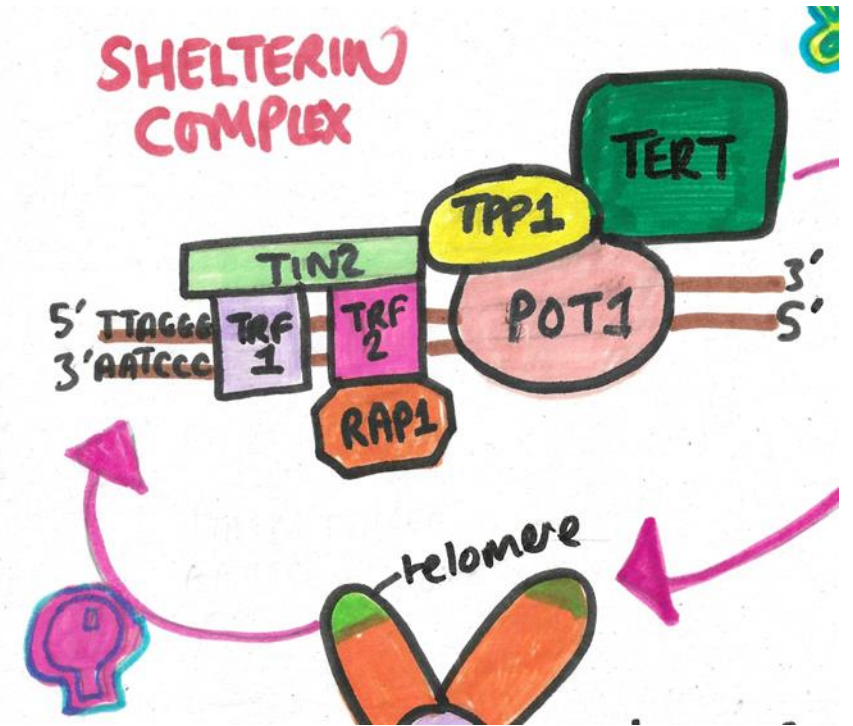 SHELTERIN
COMPLEX
TERT
TPP1
TIN2
POT1
3'
5'
5' TTAGGG
3' AATCCC
TRF
1
TRF
2
RAP1
telomere